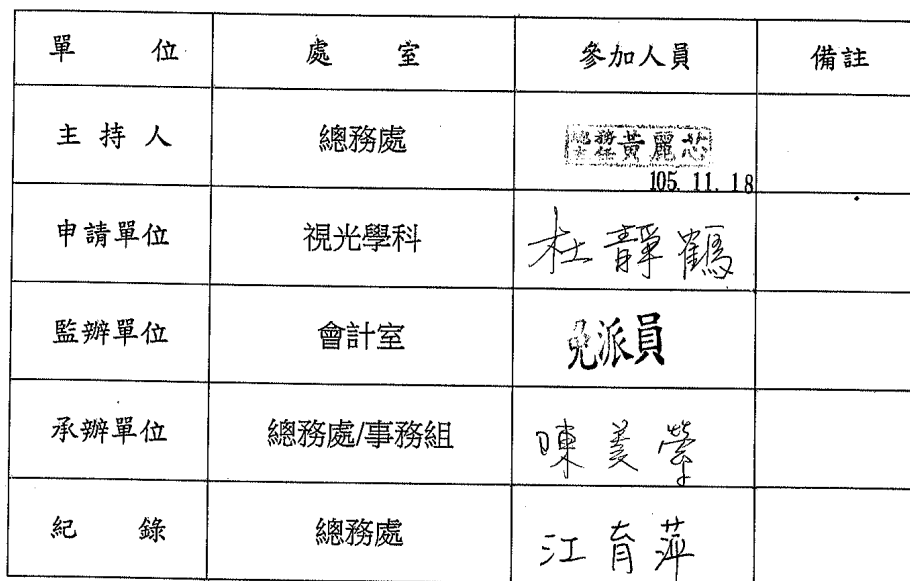 單 位 處 室 參加人員 備註
主 持 人 總務處 總務主任 黃麗芯
105. 11. 18
申請單位 視光學科 杜靜鶴
監辦單位 會計室 免派員
承辦單位 總務處/事務組 陳美瑩
紀 錄 總務處 江育萍